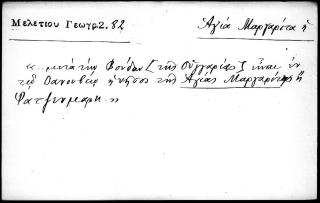 Μελετίου Γεωγρ. 2, 82
Ἁγία Μαργαρίτα ἡ
«... μετὰ τὴν Βούδαν [τῆς Οὐγγαρίας] εἶναι ἐν
τῷ Δανουβίῳ ἡ νῆσος τῆς Ἁγίας Μαργαρίτης ἢ